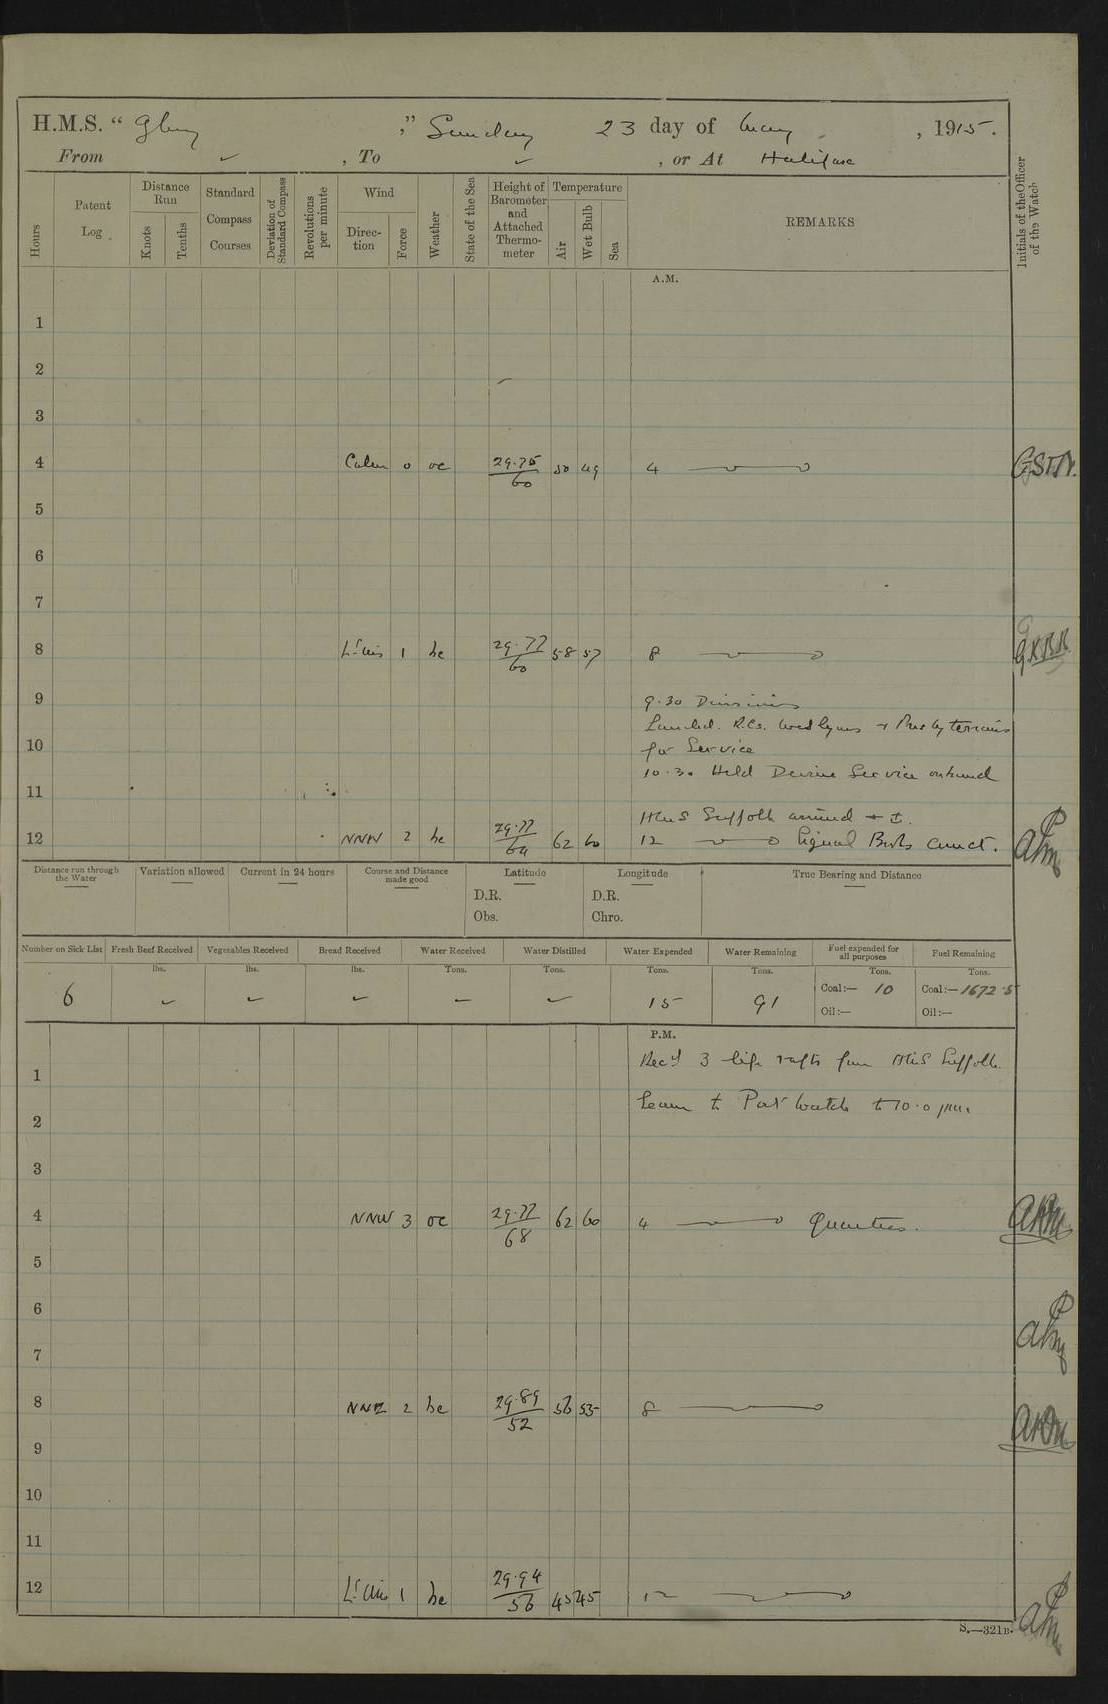 H.M.S. "Glory," Sunday 23 day of May, 1915.
From ✓, To ✓, or At Halifax
Hours
Patent Log
Distance Run
Knots
Tenths
Standard Compass Courses
Deviation of Standard Compass
Revolutions per minute
Wind
Direction
Force
Weather
State of the Sea
Height of Barometer and Attached Thermometer
Temperature
Air
Wet Bulb
Sea
REMARKS
Initials of the Officer of the Watch
A.M.
1
2
3
4 Calm 0 oc 29.75/60 50 49 4
5
6
7
8 Lt airs 1 bc 29.77/60 58 57 8
9 9.30 Divisions
Landed R.Cs. Wesleyans + Presbyterians
10 for Service
10.30 Held Devine Service onboard
11
HMS Suffolk arrived +
12 NNW 2 bc 29.77/64 62 60 12 Signal Books Correct.
Distance run through the Water
Variation allowed
Current in 24 hours
Course and Distance made good
Latitude
D.R.
Obs.
Longitude
D.R.
Chro.
True Bearing and Distance
Number on Sick List 6
Fresh Beef Received lbs. ✓
Vegetables Received lbs. ✓
Bread Received lbs. ✓
Water Received Tons. ✓
Water Distilled Tons. ✓
Water Expended Tons. 15
Water Remaining Tons. 91
Fuel expended for all purposes Tons.
Coal:— 10
Oil:—
Fuel Remaining Tons.
Coal:— 1672.5
Oil:—
P.M.
Recd 3 life rafts from HMS Suffolk.
1
Leave to Port Watch to 10.0 pm.
2
3
4 NNW 3 oc 29.77/68 62 60 4 Quarters.
5
6
7
8 NNE 2 bc 29.89/52 56 55 8
9
10
11
12 Lt airs 1 bc 29.94/56 45 45 12
S.—321B.